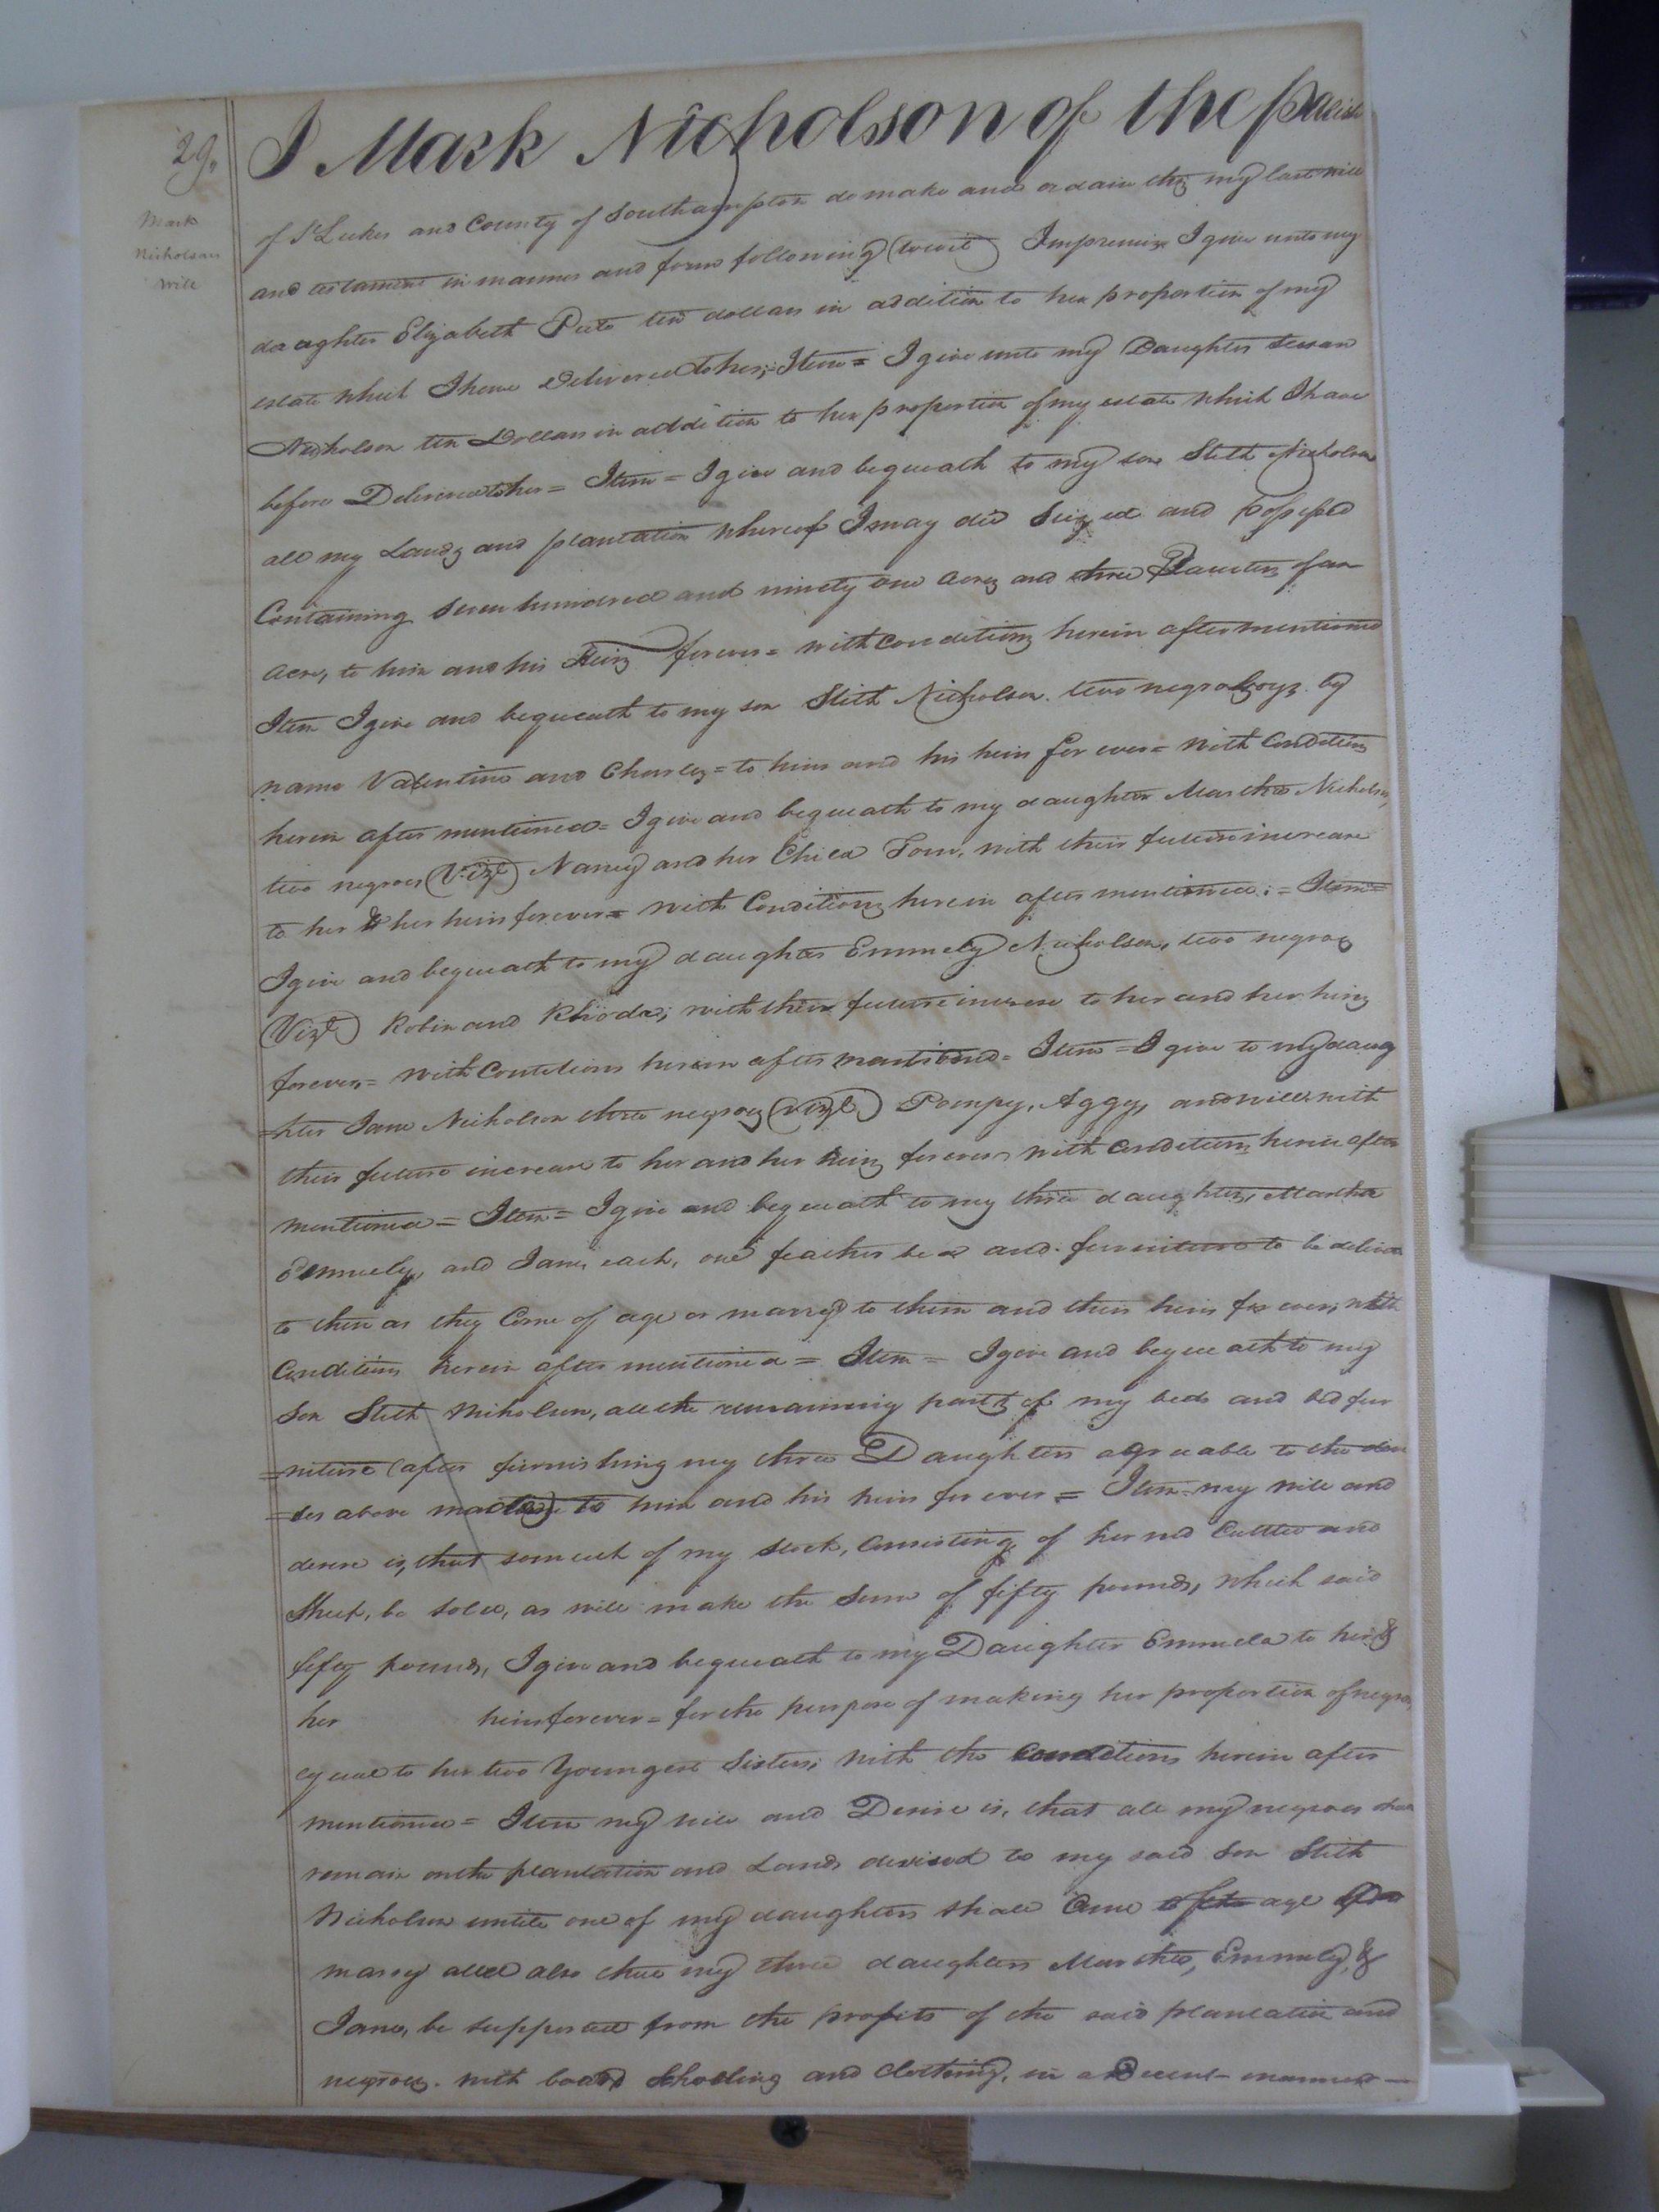 29,
Mark
Nicholsons
Will
I Mark Nicholson of the parish
of St Lukes and County of Southampton do make and ordain this my last will
and testament in manner and form following (towit) Impremise I give unto my
daughter Elizabeth Pete ten dollars in addition to her proportion of my
estate which I have Delivered to her; Item = I give unto my Daughter Susan
Nicholson ten Dollars in addition to her proportion of my estate which I have
before Delivered to her = Item = I give and bequeath to my son Stith Nicholson
all my Lands and plantation whereof I may die Seized and possessed
Containing Seven hundred and ninety one acres and three Quarters of an
acre, to him and his Heirs forever = with conditions herein after mentioned
Item I give and bequeath to my son Stith Nicholson two negro boys by
name Valentine and Charles = to him and his heirs for ever = with Conditions
herein after mentioned = I give and bequeath to my daughter Martha Nicholson,
two negroes (Vizt) Nancy and her Child Tom, with their future increase
to her & her heirs forever = with Conditions herein after mentioned: = Item =
I give and bequeath to my daughter Emmely Nicholson, two negroes
(Vizt) Robin and Rhoda; with their future increase to her and her heirs
forever, = with Contitions herein after mentioned = Item = I give to my daug
=hter Jane Nicholson three negroes (vizt) Pompey, Aggy, and will with
their future increase to her and her heirs forever with Conditions herein after
mentioned = Item = I give and bequeath to my three daughters, Martha
Emmely, and Jane, each, one feather bed and furniture to be deliver
to them as they Come of age or marry to them and their heirs for ever, with
Conditions herein after mentioned = Item = I give and bequeath to my
Son Stith Nicholson, all the remaining part of my beds and bed fur
=niture (after furnishing my three Daughters agreeable to the
above made) to him and his heirs for ever = Item my will and
desire is, that so much of my stock, Consisting of horned Cattle and
Sheep, be sold, as will make the Sum of fifty pounds, which said
fifty pounds, I give and bequeath to my Daughter Emmela to her &
her heirs forever = for the purpose of making her proportion of negroes,
equal to her two Youngest Sisters; with the conditions herein after
mentioned = Item my will and Desire is, that all my negroes shall
remain on the plantation and Lands devised to my said Son Stith
Nicholson untill one of my daughters shall Come age
marry also that my three daughters Martha, Emmely, &
Jane, be supported from the profits of the said plantation and
negroes. with board Schooling and clothing, in a Decent manner —